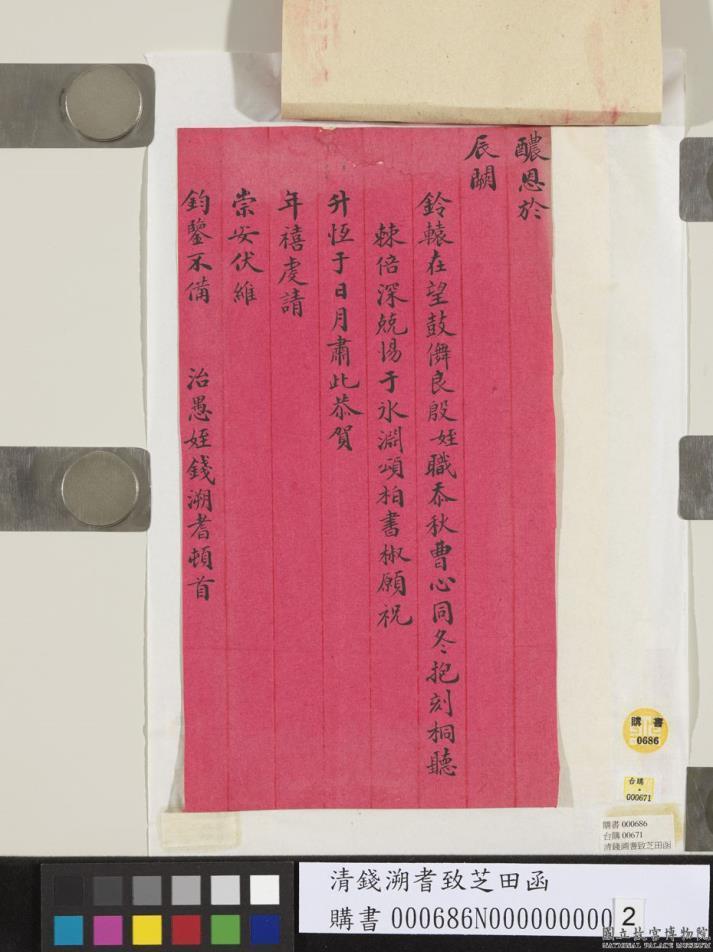 醲恩於
辰闕
鈴轅在望鼓儛良殷姪職忝秋曹心同冬抱刻桐聽
棘倍深兢惕于氷淵頌柏書椒願祝
升恆于日月肅此恭賀
年禧虔請
崇安伏維
鈞鑒不備　治愚姪錢溯耆頓首
購書
0686
台購
000671
購書 000686
台購 00671
清錢溯耆致芝田函
清錢溯耆致芝田函
購書 000686N000000000 2
國立故宮博物院
NATIONAL PALACE MUSEUM